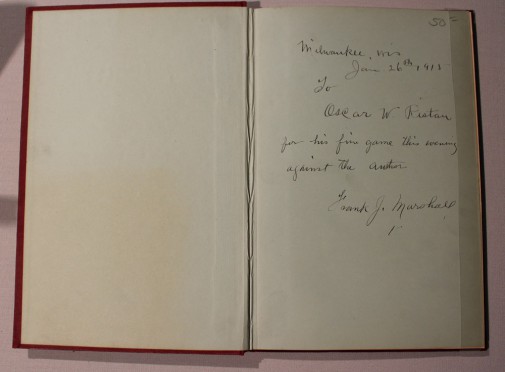 50
Milwaukee, Wis
Jan 26th, 191
To
Oscar W.
for his fine game this evening
against the author
Frank J. Marshall